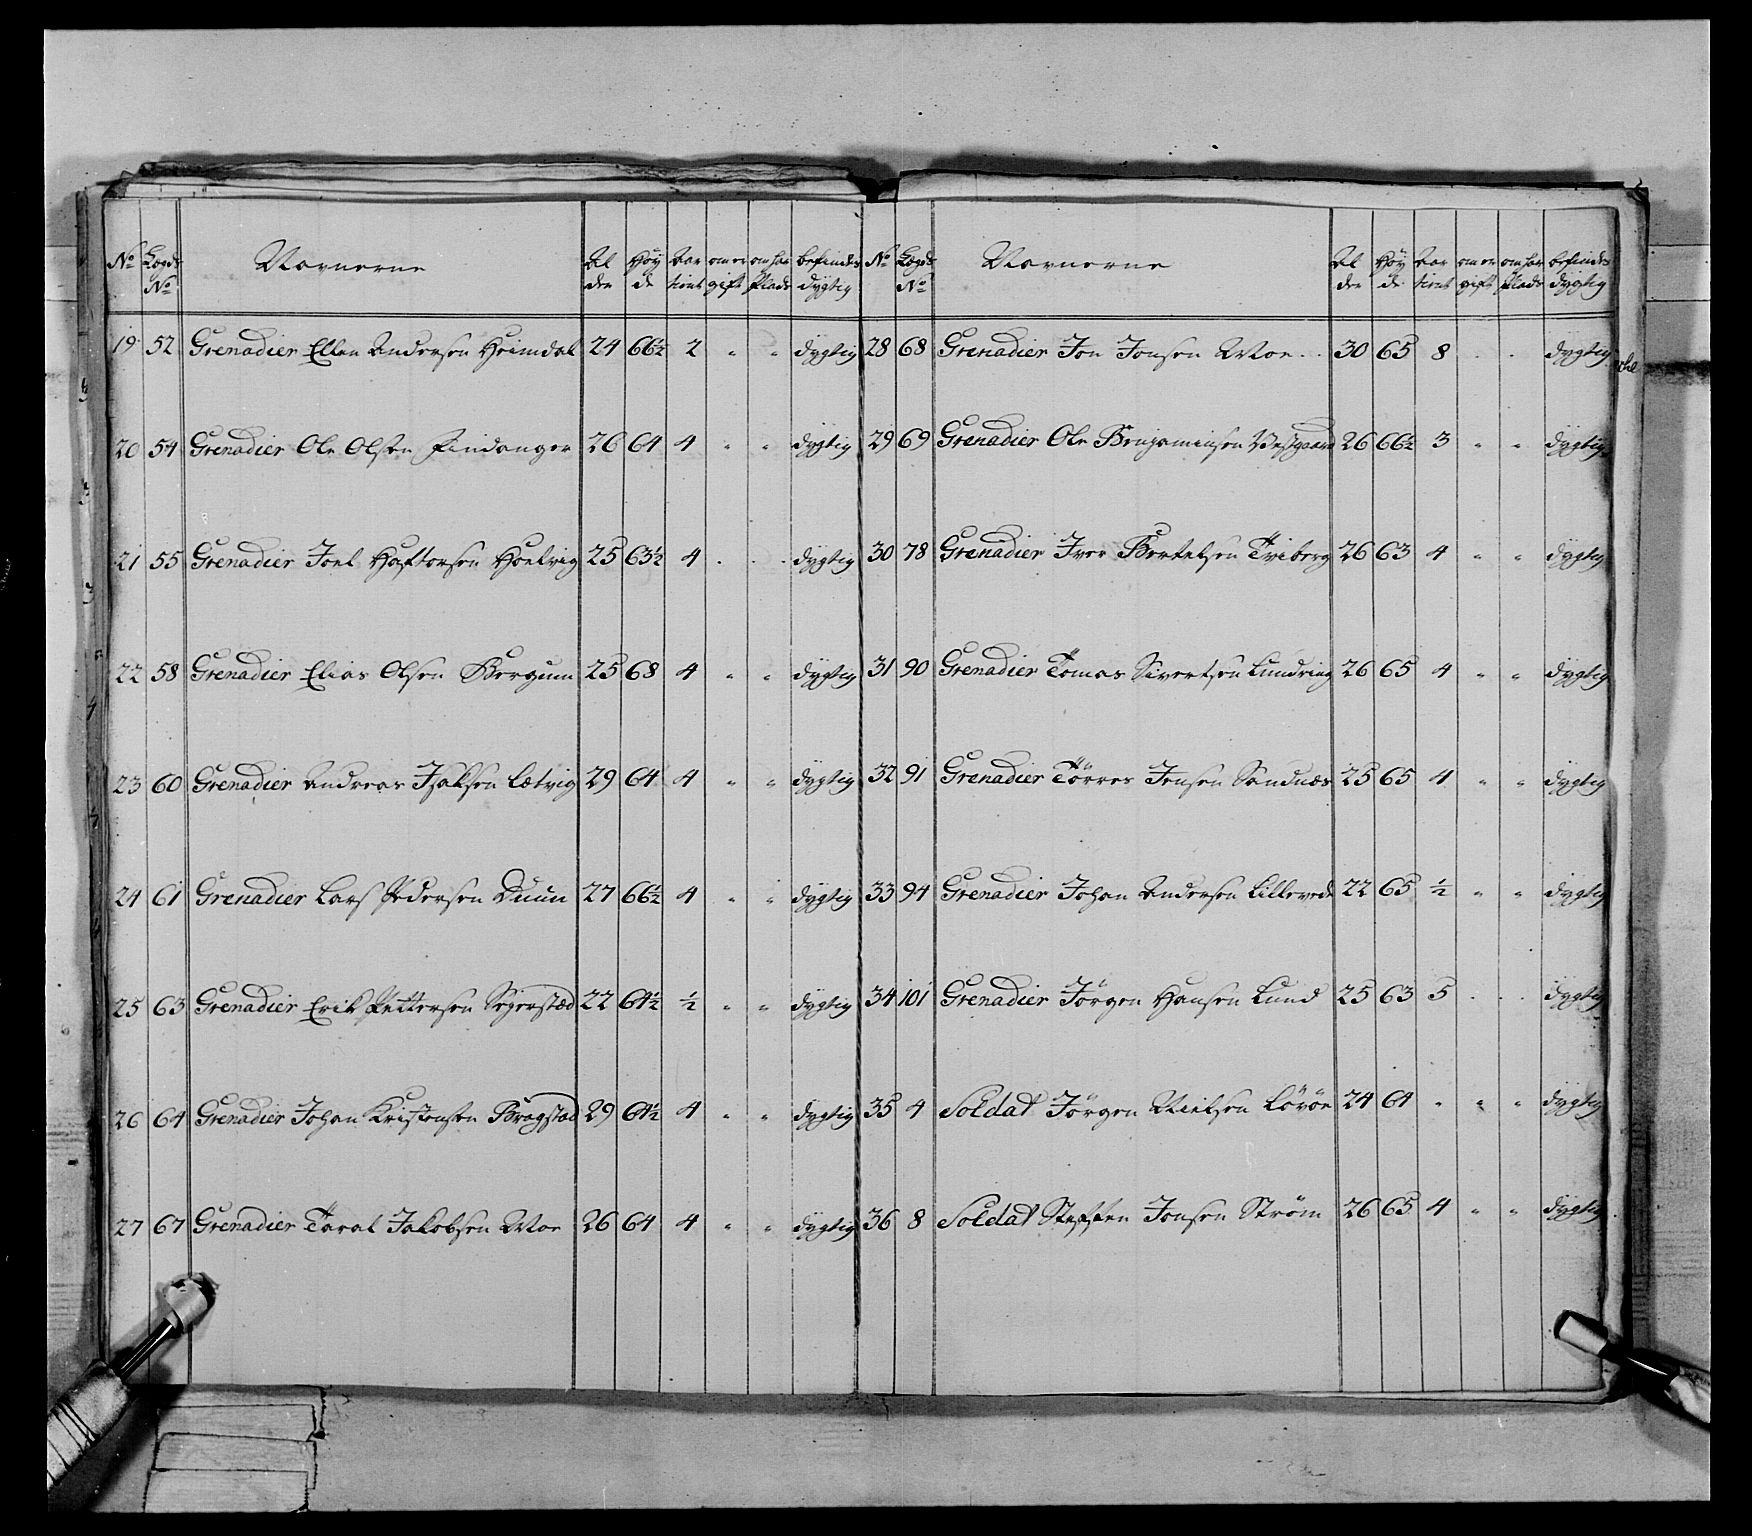 No Lægds No Navnerne Al der Høy de Aar tient om er gift om har Plads befindes dygtig
19 52 Grenadier Ellen Andersen Heimdal 24 66½ 2 " " dygtig
20 54 Grenadier Ole Olsen Findanger 26 64 4 " " dygtig
21 55 Grenadier Joel Haftorsen Hoelvig 25 63½ 4 . . dygtig
22 58 Grenadier Elias Olsen Bergum 25 68 4 " " dygtig
23 60 Grenadier Andreas Isaksen Letvig 29 64 4 " " dygtig
24 61 Grenadier Lars Pedersen Duun 27 66½ 4 " " dygtig
25 63 Grenadier Erik Pettersen Segerstad 22 64½ ½ " " dygtig
26 64 Grenadier Johan Kristensen Bragstad 29 64½ 4 " " dygtig
27 67 Grenadier Taral Jakobsen Moe 26 64 4 " " dygtig
No Lægds No Navnerne Al der Høy de Aar tient om er gift om har Plads befindes dygtig
28 68 Grenadier Jon Jonsen Moe 30 65 8 . . dygtig
29 69 Grenadier Ole Benjaminsen Vestgaard 26 66½ 3 " " dygtig
30 78 Grenadier Iver Bertelsen Friberg 26 63 4 " " dygtig
31 90 Grenadier Tomas Sivertsen Lundring 26 65 4 " " dygtig
32 91 Grenadier Törres Jensen Sandnæs 25 65 4 " " dygtig
33 94 Grenadier Johan Andersen Lillevede 22 65 ½ " " dygtig
34 101 Grenadier Jörgen Hansen Lund 25 63 5 . . dygtig
35 4 Soldat Jörgen Nielsen Löröe 24 64 " " " dygtig
36 8 Soldat Steffen Jonsen Ström 26 65 4 " " dygtig